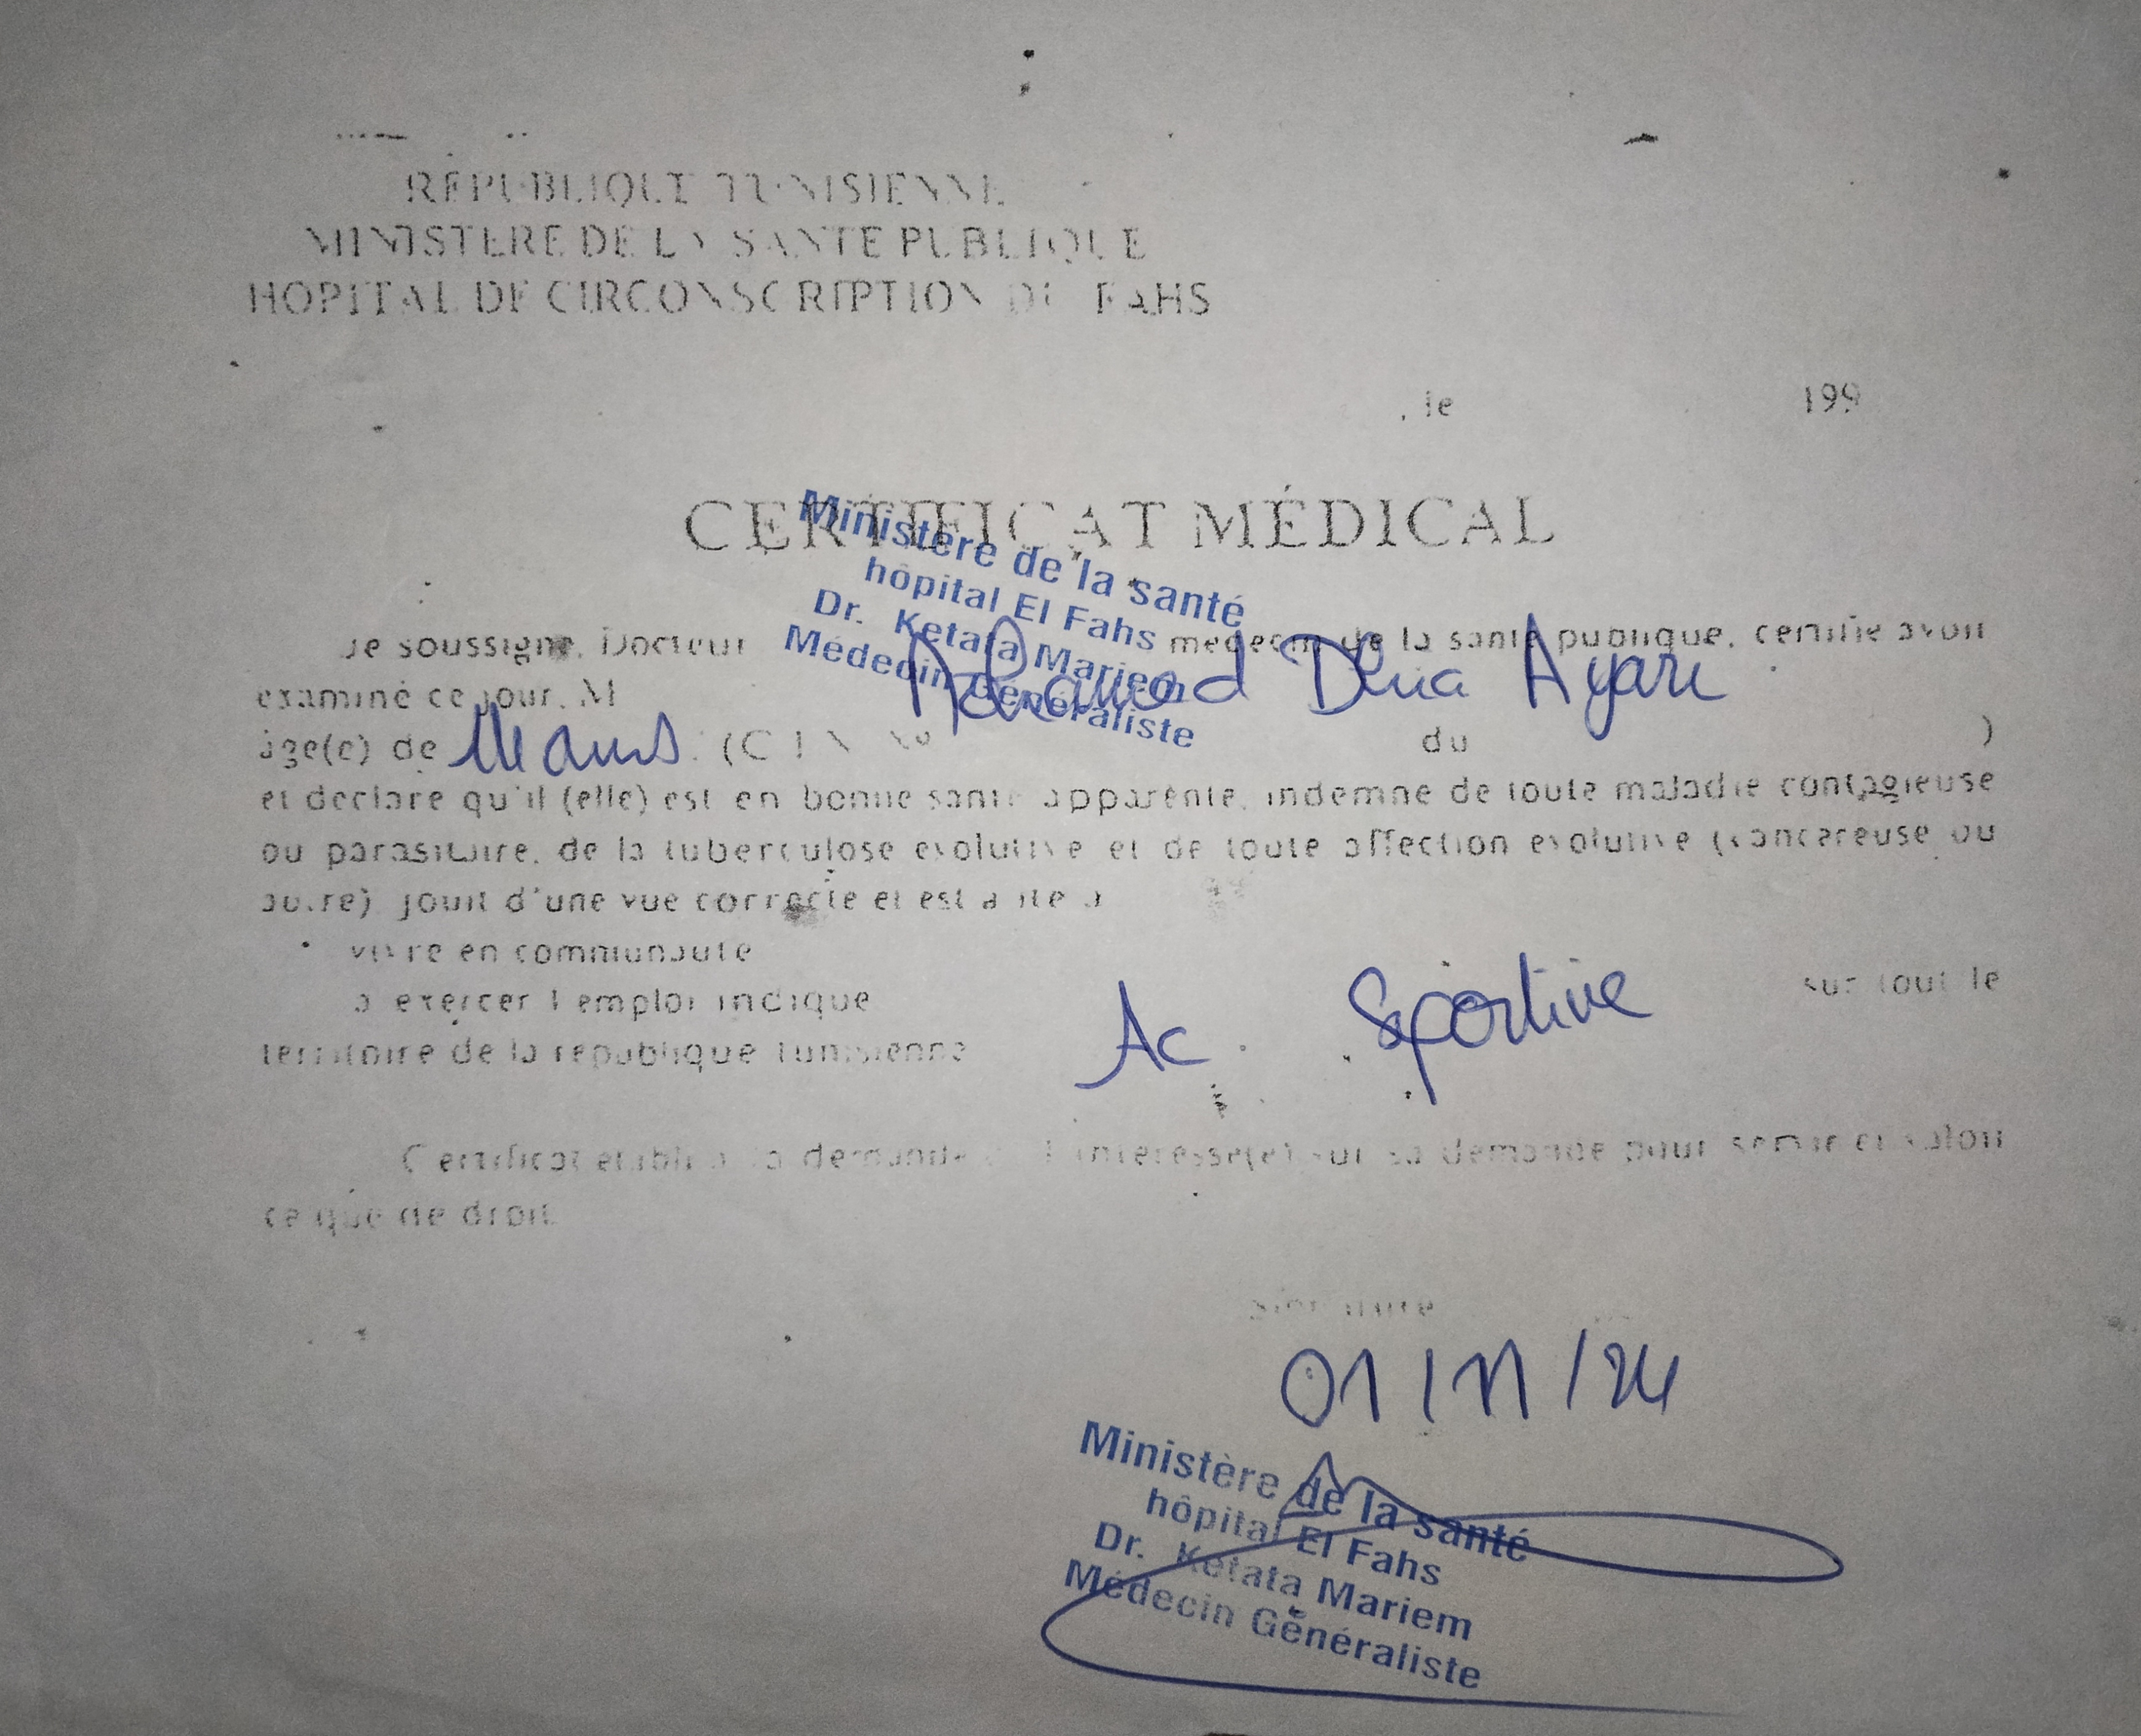 RÉPUBLIQUE TUNISIENNE
MINISTERE DE LA SANTE PUBLIQUE
HOPITAL DE CIRCONSCRIPTION DU FAHS
, le 199
CERTIFICAT MÉDICAL
Ministère de la santé
hôpital El Fahs
Dr. Ketata Mariem
Médecin Généraliste
Je soussigné, Docteur médecin de la santé publique, certifie avoir
examiné ce jour, M Dhia Ayari
âgé(e) de ans. (C I N N° du )
et déclare qu'il (elle) est en bonne santé apparente, indemne de toute maladie contagieuse
ou parasitaire, de la tuberculose évolutive et de toute affection évolutive (cancéreuse ou
autre) jouit d'une vue correcte et est apte à
vivre en communauté
à exercer l'emploi indiqué Ac. Sportive sur tout le
territoire de la république tunisienne
Certificat établi à la demande de l'intéressé(e) sur sa demande pour servir et valoir
ce que de droit.
Signature
01/11/24
Ministère de la santé
hôpital El Fahs
Dr. Ketata Mariem
Médecin Généraliste